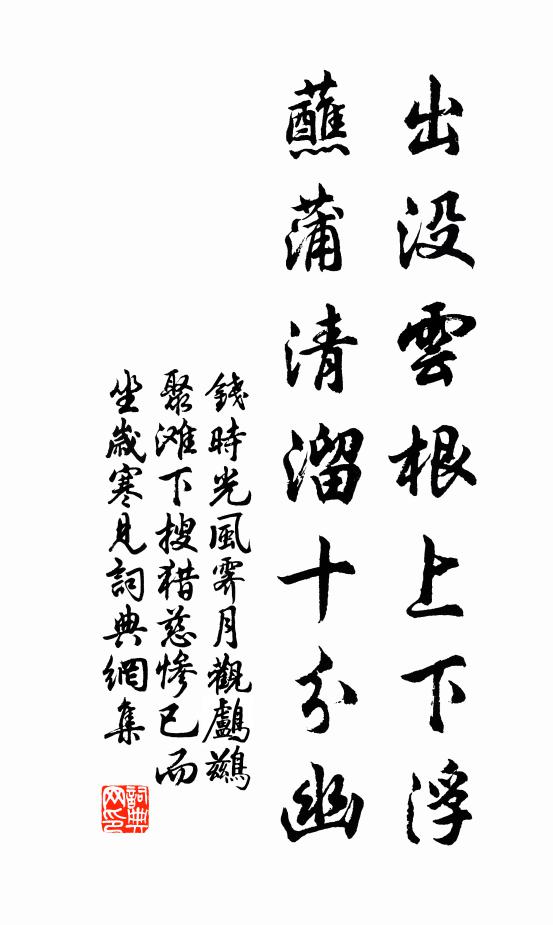 出没雲根上下浮
蘸蒲清溜十分幽
錢時光風霽月觀鸕鷀
聚滩下搜猎慈惨已而
坐歲寒見詞典網集
詞典网印